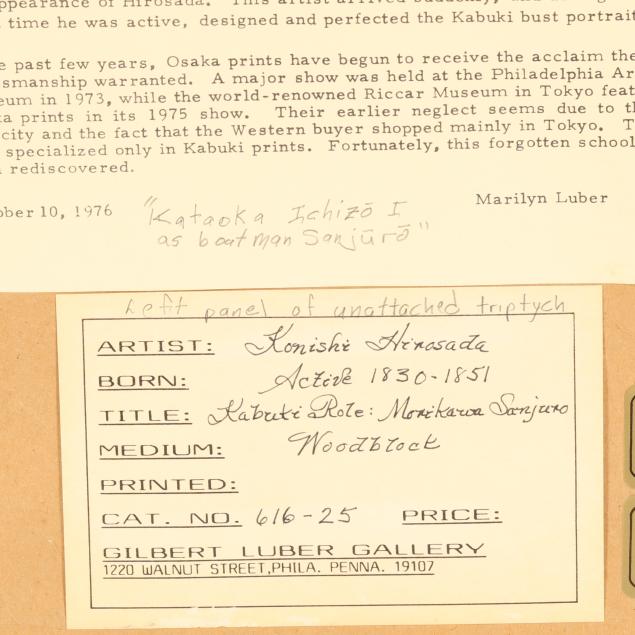 ppearance of Hirosada. This artist arrived suddenly, and
time he was active, designed and perfected the Kabuki bust portrait
e past few years, Osaka prints have begun to receive the acclaim the
smanship warranted. A major show was held at the Philadelphia Ar
eum in 1973, while the world-renowned Riccar Museum in Tokyo feat
ka prints in its 1975 show. Their earlier neglect seems due to th
city and the fact that the Western buyer shopped mainly in Tokyo. T
specialized only in Kabuki prints. Fortunately, this forgotten school
rediscovered.
ober 10, 1976
Marilyn Luber
"Kataoka Ichizō I
as boatman Sanjūrō"
Left panel of unattached triptych
ARTIST: Konishi Hirosada
BORN: Active 1830-1851
TITLE: Kabuki Role: Morikawa Sanjuro
MEDIUM: Woodblock
PRINTED:
CAT. NO. 616-25 PRICE:
GILBERT LUBER GALLERY
1220 WALNUT STREET, PHILA. PENNA. 19107